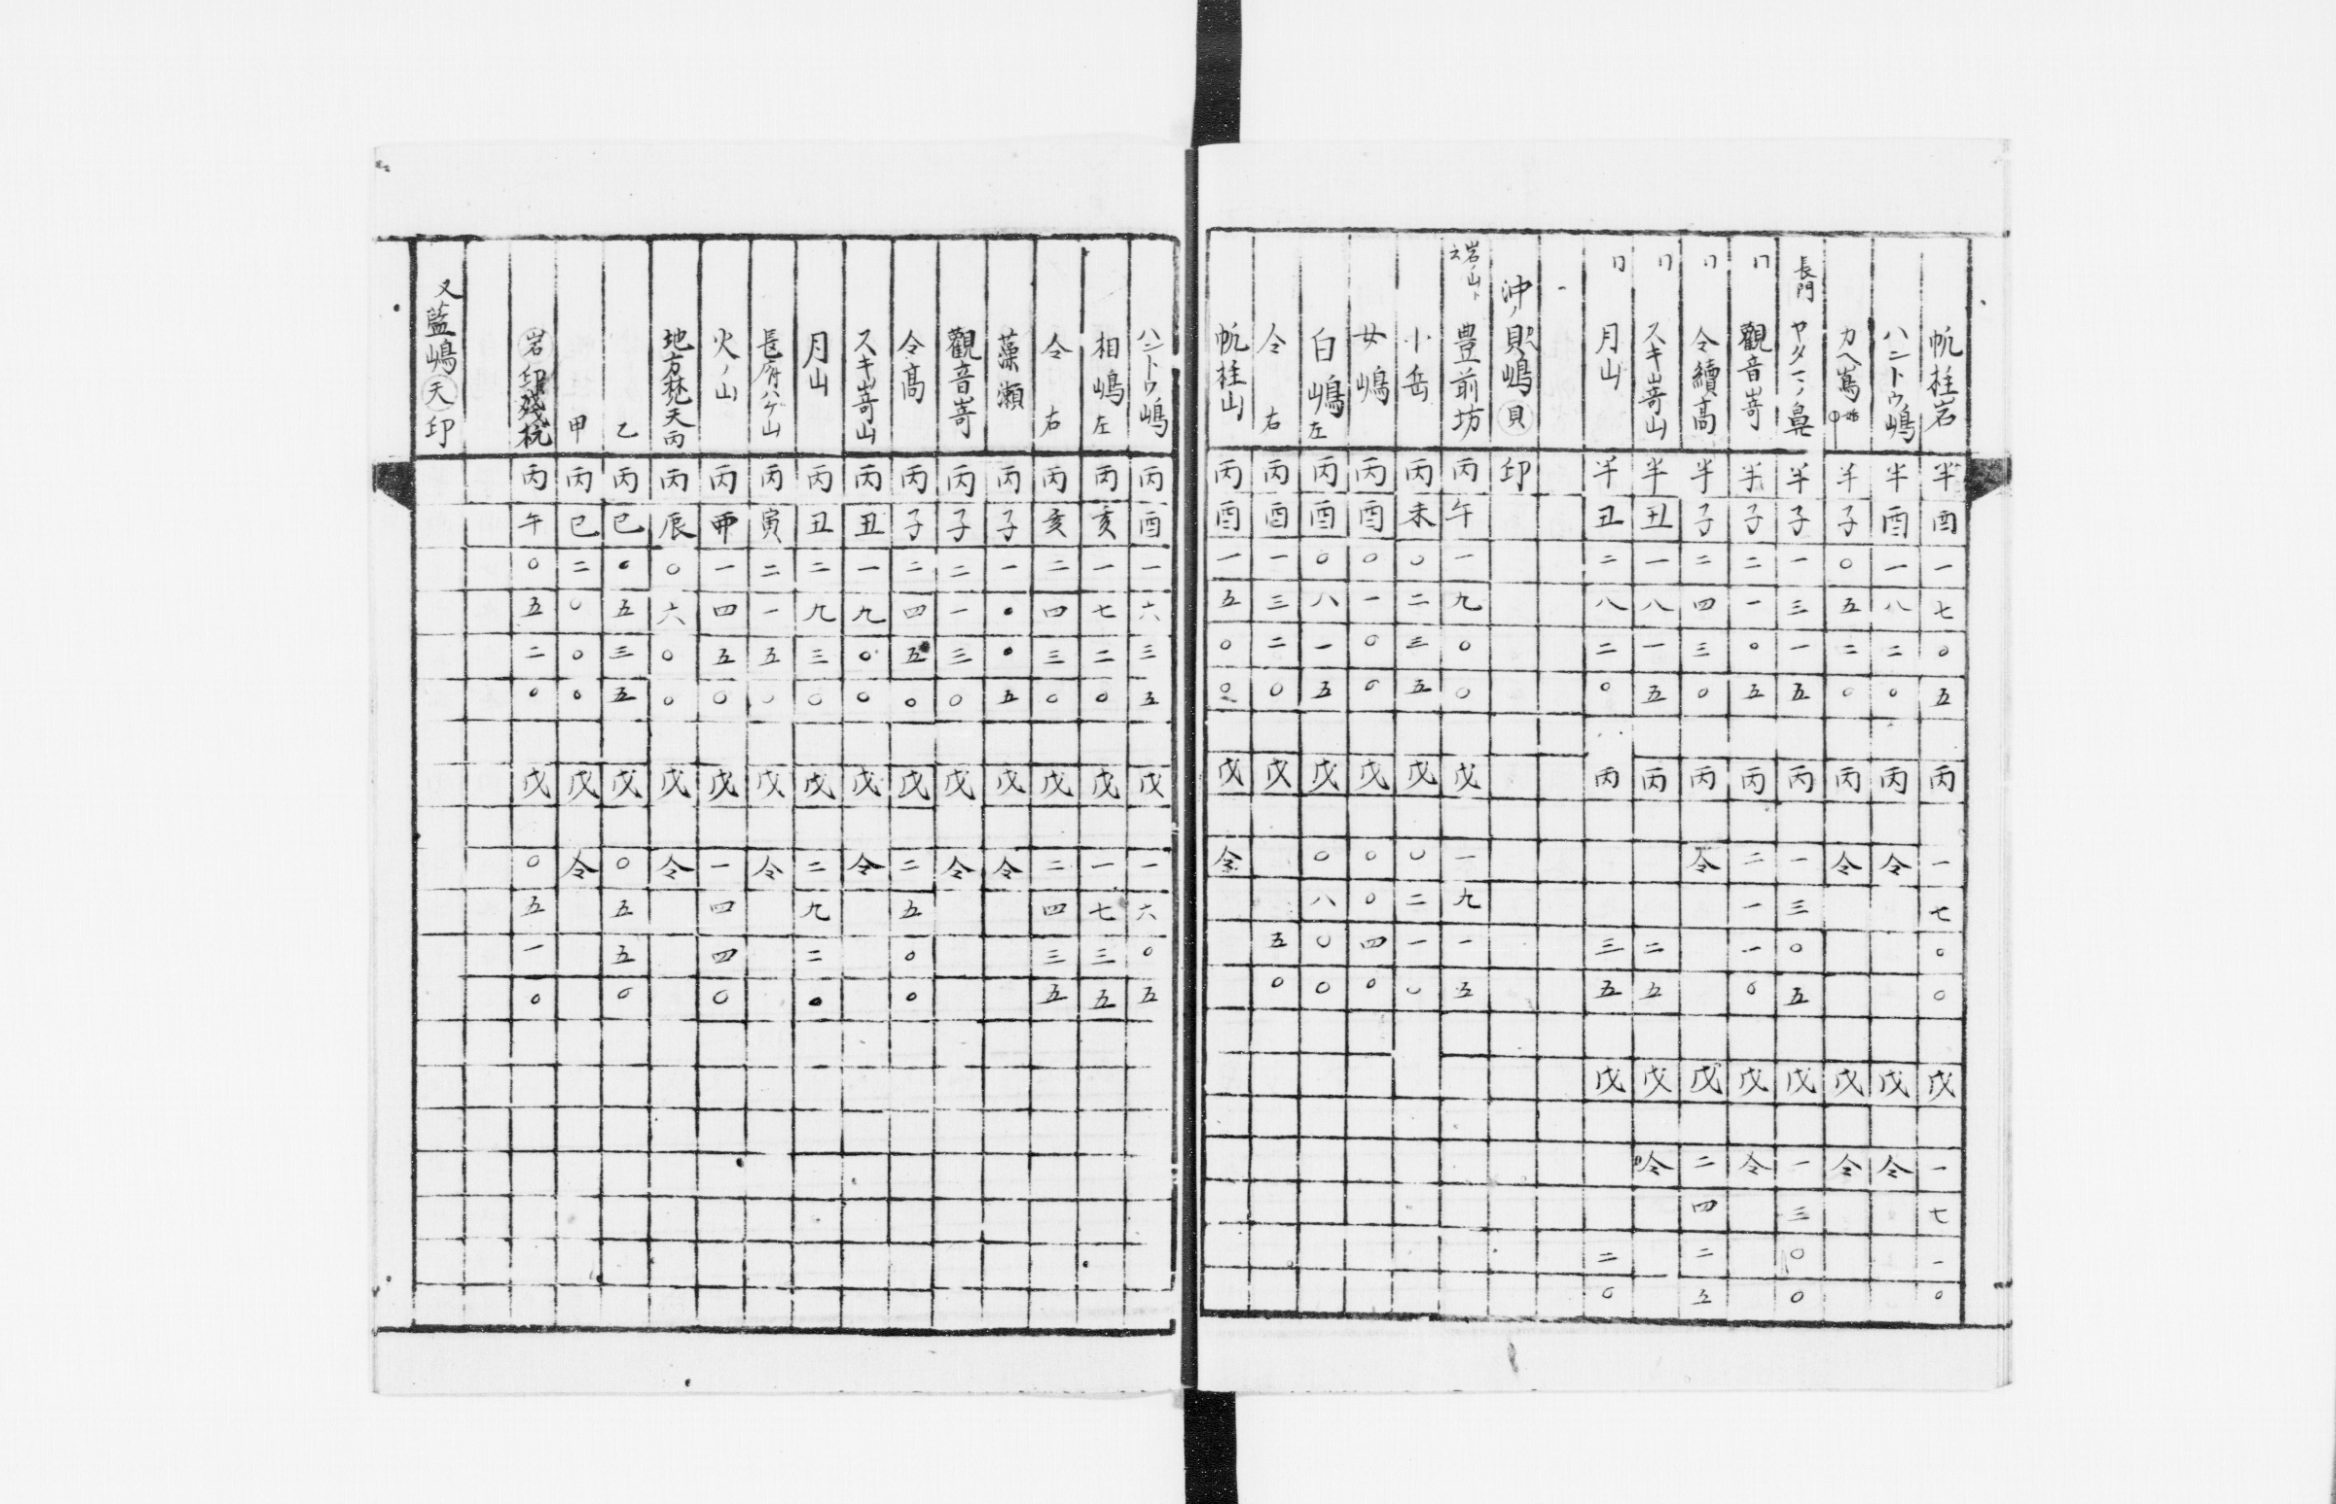 帆柱岩 半酉一七〇五 丙 一七〇〇 戊 一七一〇
ハニトウ嶋 半酉一八二〇 丙 仝 戊 仝
カヘ嶌 半子〇五二〇 丙 仝 戊 仝
長門 ヤタマノ鼻 半子一三一五 丙 一三〇五 戊 一三〇〇
〃 觀音嵜 半子二一〇五 丙 二一一〇 戊 仝
〃 仝續高 半子二四三〇 丙 仝 戊 二四二五
〃 スキ嵜山 半丑一八一五 丙 二五 戊 仝
〃 月山 半丑二八二〇 丙 三五 戊 二〇
沖ノ貝嶋貝印
岩ノ山ト云 豊前坊 丙午一九〇〇 戊 一九一五
小岳 丙未〇二三五 戊 〇二一〇
女嶋 丙酉〇一〇〇 戊 〇〇四〇
白嶋 左 丙酉〇八一五 戊 〇八〇〇
仝 右 丙酉一三二〇 戊 五〇
帆柱山 丙酉一五〇〇 戊 仝
ハントウ嶋 丙酉一六三五 戊 一六〇五
相嶋 左 丙亥一七二〇 戊 一七三五
仝 右 丙亥二四三〇 戊 二四三五
藻瀬 丙子一〇〇五 戊 仝
觀音嵜 丙子二一三〇 戊 仝
仝高 丙子二四五〇 戊 二五〇〇
スキ嵜山 丙丑一九〇〇 戊 仝
月山 丙丑二九三〇 戊 二九二〇
長府ハケ山 丙寅二一五〇 戊 仝
火ノ山 丙甲一四五〇 戊 一四四〇
地方梵天丙 丙辰〇六〇〇 戊 仝
乙 丙巳〇五三五 戊 〇五五〇
甲 丙巳二〇〇〇 戊 仝
岩印殘杭 丙午〇五二〇 戊 〇五一〇
又藍嶋天印